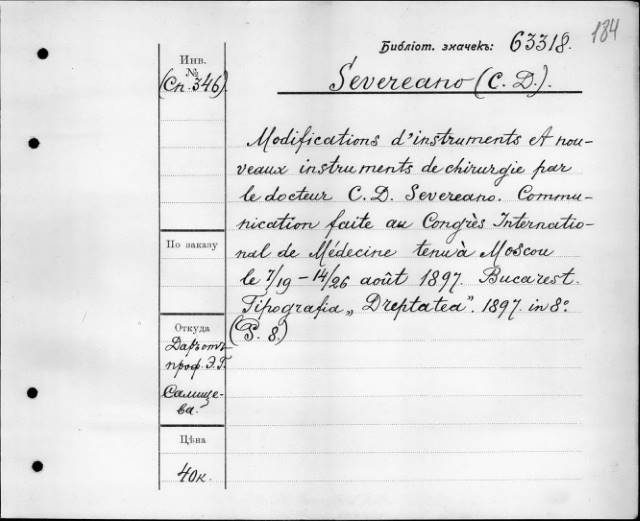 184
Библіот. значекъ: 63318.
Severeano (C. D.).
Инв.
№
(Сп. 346).
Modifications d'instruments et nou-
veaux instruments de chirurgie par
le docteur C. D. Severeano. Commu-
nication faite au Congrès Internatio-
nal de Médecine tenu à Moscou
le 7/19 – 14/26 août 1897. Bucarest.
Tipografia „Dreptatea". 1897. in 8°.
(P. 8.)
По заказу
Откуда
Даръ отъ
проф. Э. Г.
Салище-
ва.
Цѣна
40к.